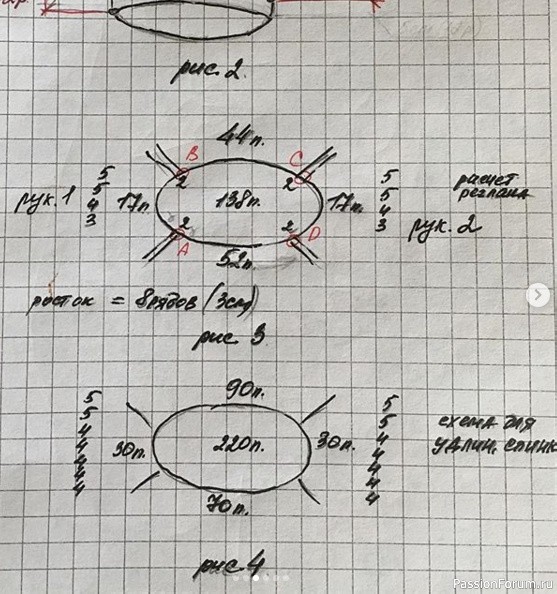 рис. 2.
44п.
B
C
2
2
5
5
4
3
рук. 1
17п.
138п.
17п.
5
5
4
3
рук. 2
расчет
реглана
2
2
A
D
52п.
росток = 8рядов (3см)
рис 3
90п.
5
5
4
4
4
4
4
30п.
220п.
30п.
5
5
4
4
4
4
4
схема для
удлин. спинк
70п.
рис 4
PassionForum.ru